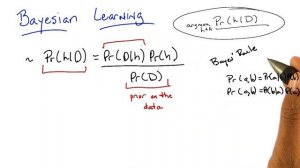 Bayesian Learning
argmax h∈H Pr(h|D)
~ Pr(h|D) = Pr(D|h) Pr(h)
Pr(D)
prior on the
data
Bayes' Rule
Pr(a,b) =
Pr(a,b) =